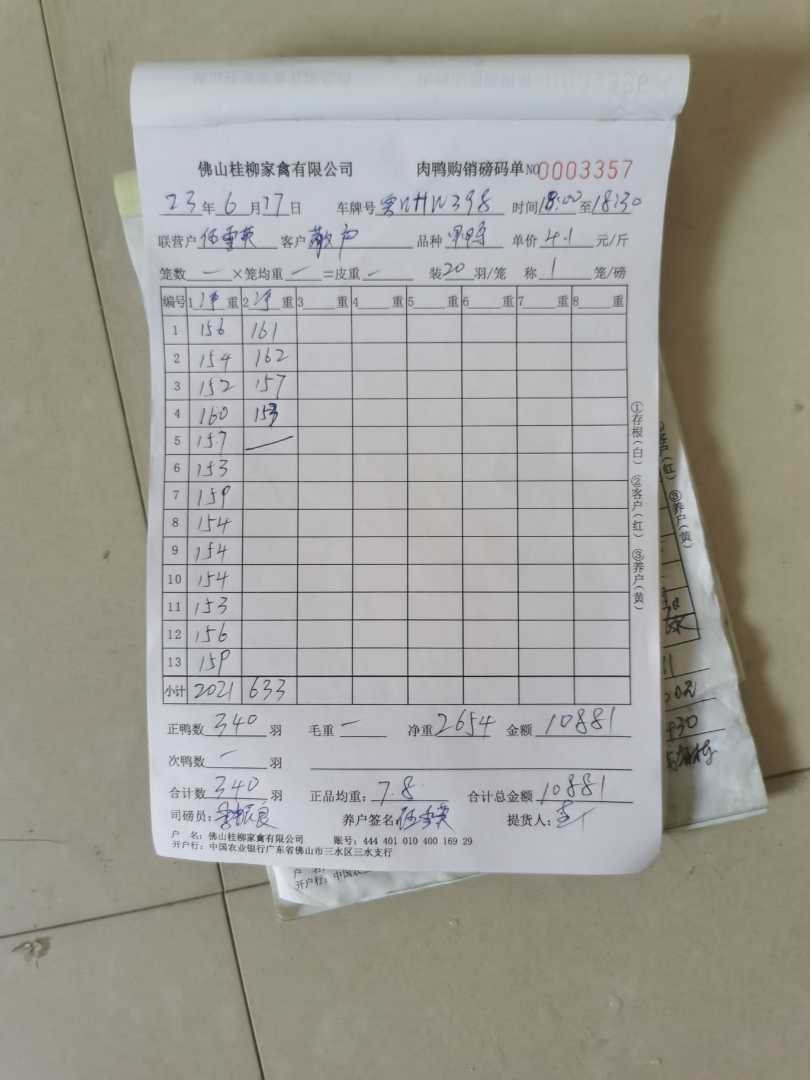 佛山桂柳家禽有限公司 肉鸭购销磅码单 NO 0003357
23年6月17日 车牌号 HW398 时间18:00至18:30
联营户伍雪英 客户散户 品种 单价4.1元/斤
笼数一×笼均重一=皮重一 装20羽/笼 称1笼/磅
编号 1净重 2净重 3重 4重 5重 6重 7重 8重
1 156 161
2 154 162
3 152 157
4 160 153
5 157 —
6 153
7 159
8 154
9 154
10 154
11 153
12 156
13 159
小计 2021 633
①存根(白) ②客户(红) ③养户(黄)
正鸭数340羽 毛重一 净重2654 金额10881
次鸭数一羽
合计数340羽 正品均重:7.8 合计总金额10881
司磅员: 养户签名:伍雪英 提货人:
户 名:佛山桂柳家禽有限公司 账号:444 401 010 400 169 29
开户行:中国农业银行广东省佛山市三水区三水支行
(红) ③养户(黄)
户 名
开户行:中国农